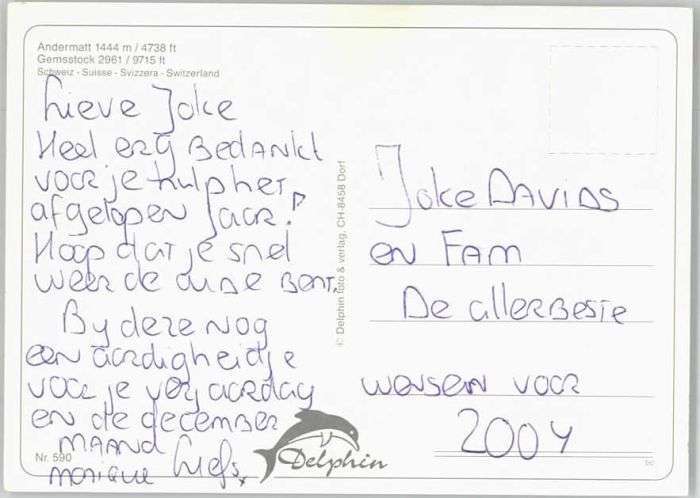 Andermatt 1444 m / 4738 ft
Gemsstock 2961 / 9715 ft
Schweiz - Suisse - Svizzera - Switzerland
Lieve Joke
Heel erg Bedankt
voor je hulp het
afgelopen jaar!
Hoop dat je snel
weer de oude bent.
By deze nog
een aardigheidje
voor je verjaardag
en de december
maand
monique Liefs x
Nr. 590
Delphin
© Delphin foto & verlag, CH-8458 Dorf
Joke Davids
en Fam
De allerbeste
wensen voor
2004